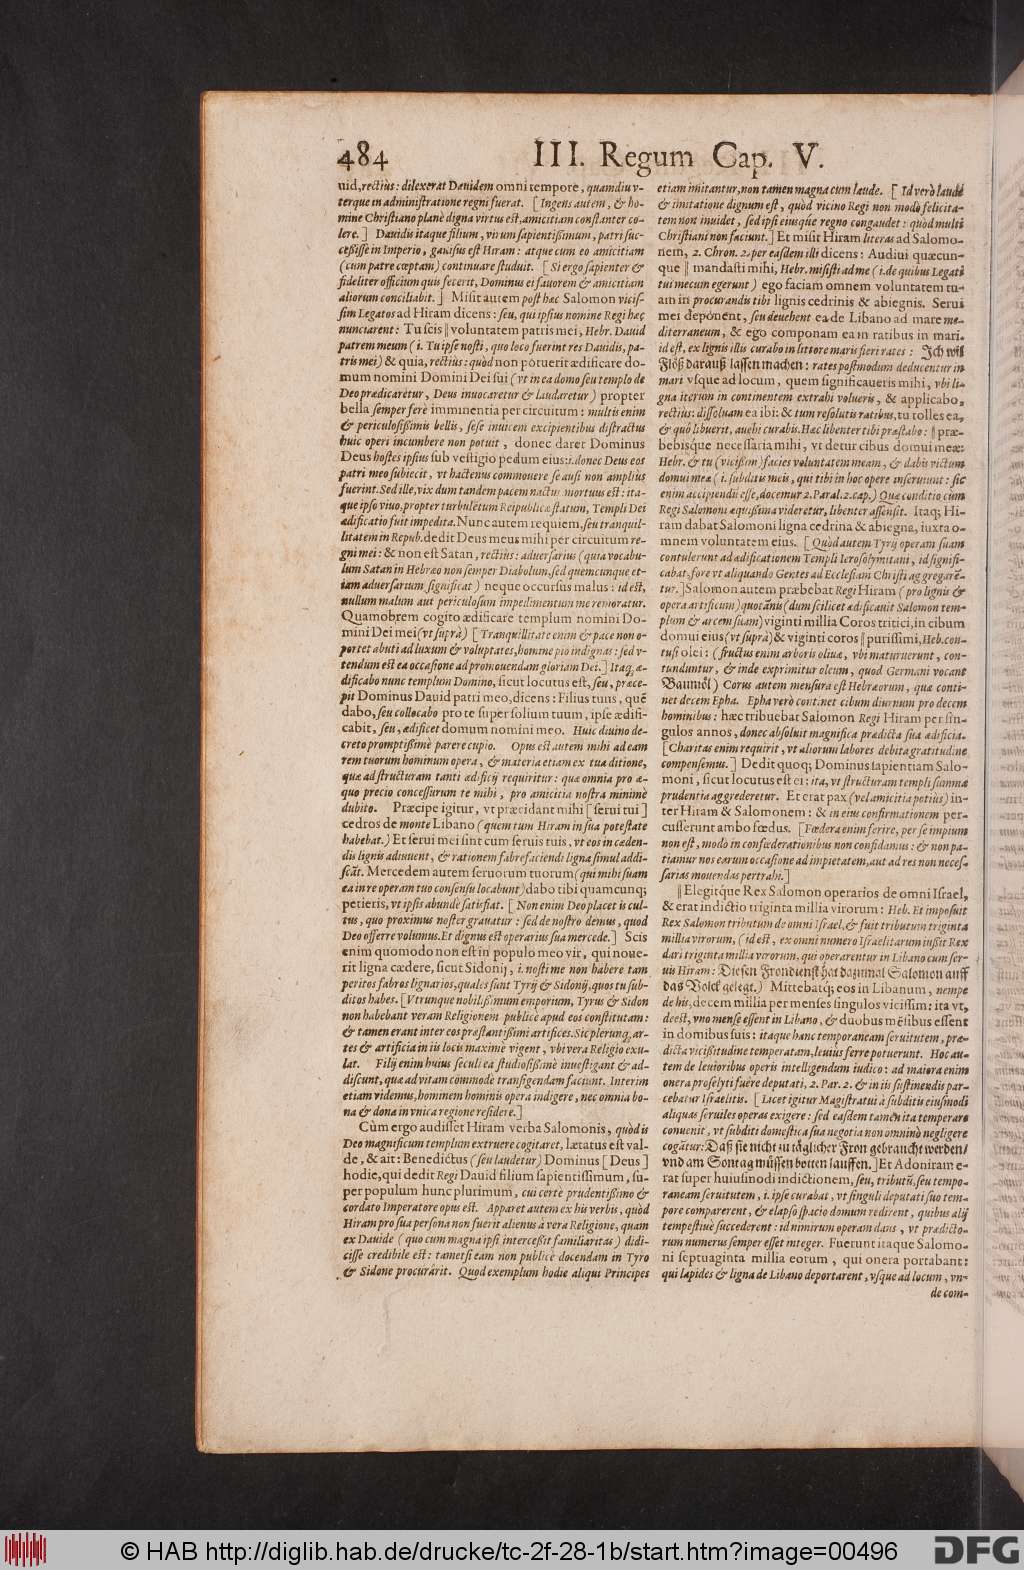 484
III. Regum Cap. V.
uid, rectiùs: dilexerat Dauidem omni tempore, quamdiu v-
terque in administratione regni fuerat. [Ingens autem, & ho-
mine Christiano planè digna virtus est, amicitiam constanter co-
lere.] Dauidis itaque filium, virum sapientißimum, patri suc-
ceßisse in Imperio, gauisus est Hiram: atque cum eo amicitiam
(cum patre cœptam) continuare studuit. [Si ergo sapienter &
fideliter officium quis fecerit, Dominus ei fauorem & amicitiam
aliorum conciliabit.] Misit autem post hæc Salomon vicis-
sim Legatos ad Hiram dicens: seu, qui ipsius nomine Regi hæc
nunciarent: Tu scis ‖ voluntatem patris mei, Hebr. Dauid
patrem meum (i. Tu ipse nosti, quo loco fuerint res Dauidis, pa-
tris mei) & quia, rectiùs: quòd non potuerit ædificare do-
mum nomini Domini Dei sui (vt in ea domo seu templo de
Deo prædicaretur, Deus inuocaretur & laudaretur) propter
bella semper ferè imminentia per circuitum: multis enim
& periculosißimis bellis, sese inuicem excipientibus distractus
huic operi incumbere non potuit, donec daret Dominus
Deus hostes ipsius sub vestigio pedum eius: i. donec Deus eos
patri meo subiecit, vt hactenus commouere se ausi non amplius
fuerint. Sed ille, vix dum tandem pacem nactus mortuus est: ita-
que ipso viuo, propter turbulẽtum Reipublicæ statum, Templi Dei
ædificatio fuit impedita. Nunc autem requiem, seu tranquil-
litatem in Repub. dedit Deus meus mihi per circuitum re-
gni mei: & non est Satan, rectiùs: aduersarius (quia vocabu-
lum Satan in Hebræo non semper Diabolum, sed quemcunque et-
iam aduersarium significat) neque occursus malus: id est,
nullum malum aut periculosum impedimentum me remoratur.
Quamobrem cogito ædificare templum nomini Do-
mini Dei mei (vt suprà) [Tranquillitate enim & pace non o-
portet abuti ad luxum & voluptates, homine pio indignas: sed v-
tendum est ea occasione ad promouendam gloriam Dei.] Itaq; æ-
dificabo nunc templum Domino, sicut locutus est, seu, præce-
pit Dominus Dauid patri meo, dicens: Filius tuus, quẽ
dabo, seu collocabo pro te super solium tuum, ipse ædifi-
cabit, seu, ædificet domum nomini meo. Huic diuino de-
creto promptißimè parere cupio. Opus est autem mihi ad eam
rem tuorum hominum opera, & materia etiam ex tua ditione,
quæ ad structuram tanti ædificij requiritur: quæ omnia pro æ-
quo precio concessurum te mihi, pro amicitia nostra minimè
dubito. Præcipe igitur, vt præcidant mihi [serui tui]
cedros de monte Libano (quem tum Hiram in sua potestate
habebat.) Et serui mei sint cum seruis tuis, vt eos in cæden-
dis lignis adiuuent, & rationem fabrefaciendi ligna simul addi-
scãt. Mercedem autem seruorum tuorum (qui mihi suam
ea in re operam tuo consensu locabunt) dabo tibi quamcunq;
petieris, vt ipsis abundè satisfiat. [Non enim Deo placet is cul-
tus, quo proximus noster grauatur: sed de nostro demus, quod
Deo offerre volumus. Et dignus est operarius sua mercede.] Scis
enim quomodo non est in populo meo vir, qui noue-
rit ligna cædere, sicut Sidonij, i. nosti me non habere tam
peritos fabros lignarios, quales sunt Tyrij & Sidonij, quos tu sub-
ditos habes. [Vtrunque nobilißimum emporium, Tyrus & Sidon
non habebant veram Religionem publicè apud eos constitutam:
& tamen erant inter eos præstantißimi artifices. Sic plerunq; ar-
tes & artificia in iis locis maximè vigent, vbi vera Religio exu-
lat. Filij enim huius seculi ea studiosißimè inuestigant & ad-
discunt, quæ ad vitam commodè transigendam faciunt. Interim
etiam videmus, hominem hominis opera indigere, nec omnia bo-
na & dona in vnica regione residere.]
Cùm ergo audisset Hiram verba Salomonis, quòd is
Deo magnificum templum extruere cogitaret, lætatus est val-
de, & ait: Benedictus (seu laudetur) Dominus [Deus]
hodie, qui dedit Regi Dauid filium sapientissimum, su-
per populum hunc plurimum, cui certe prudentißimo &
cordato Imperatore opus est. Apparet autem ex his verbis, quòd
Hiram pro sua persona non fuerit alienus à vera Religione, quam
ex Dauide (quo cum magna ipsi interceßit familiaritas) didi-
cisse credibile est: tametsi eam non publicè docendam in Tyro
& Sidone procurârit. Quod exemplum hodie aliqui Principes
etiam imitantur, non tamen magna cum laude. [Id verò laude
& imitatione dignum est, quòd vicino Regi non modò felicita-
tem non inuidet, sed ipsi eiusque regno congaudet: quòd multi
Christiani non faciunt.] Et misit Hiram literas ad Salomo-
nem, 2. Chron. 2. per easdem illi dicens: Audiui quæcun-
que ‖ mandasti mihi, Hebr. misisti ad me (i. de quibus Legati
tui mecum egerunt) ego faciam omnem voluntatem tu-
am in procurandis tibi lignis cedrinis & abiegnis. Serui
mei deponent, seu deuehent ea de Libano ad mare me-
diterraneum, & ego componam ea in ratibus in mari.
id est, ex lignis illis curabo in littore maris fieri rates: Ich wil
Flöß darauß lassen machen: rates postmodum deducentur in
mari vsque ad locum, quem significaueris mihi, vbi li-
gna iterum in continentem extrahi volueris, & applicabo,
rectius: dissoluam ea ibi: & tum resolutis ratibus, tu tolles ea,
& quò libuerit, auehi curabis. Hæc libenter tibi præstabo: ‖ præ-
bebisque necessaria mihi, vt detur cibus domui meæ:
Hebr. & tu (vicißim) facies voluntatem meam, & dabis victum
domui meæ (i. subditis meis, qui tibi in hoc opere inseruiunt: sic
enim accipiendū esse, docemur 2. Paral. 2. cap.) Quæ conditio cùm
Regi Salomoni æquißima videretur, libenter assensit. Itaq; Hi-
ram dabat Salomoni ligna cedrina & abiegna, iuxta o-
mnem voluntatem eius. [Quòd autem Tyrij operam suam
contulerunt ad ædificationem Templi Ierosolymitani, id signifi-
cabat, fore vt aliquando Gentes ad Ecclesiam Christi aggregarẽ-
tur.] Salomon autem præbebat Regi Hiram (pro lignis &
opera artificum) quotannis (dum scilicet ædificauit Salomon tem-
plum & arcem suam) viginti millia Coros tritici, in cibum
domui eius (vt suprà) & viginti coros ‖ purissimi, Heb. con-
tusi olei: (fructus enim arboris oliuæ, vbi maturuerunt, con-
tunduntur, & inde exprimitur oleum, quod Germani vocant
Baumöl) Corus autem mensura est Hebræorum, quæ conti-
net decem Epha. Epha verò continet cibum diurnum pro decem
hominibus: hæc tribuebat Salomon Regi Hiram per sin-
gulos annos, donec absoluit magnifica prædicta sua ædificia.
[Charitas enim requirit, vt aliorum labores debita gratitudine
compensemus.] Dedit quoq; Dominus sapientiam Salo-
moni, sicut locutus est ei: ita, vt structuram templi summa
prudentia aggrederetur. Et erat pax (vel amicitia potius) in-
ter Hiram & Salomonem: & in eius confirmationem per-
cusserunt ambo fœdus. [Fœdera enim ferire, per se impium
non est, modò in confœderationibus non confidamus: & non pa-
tiamur nos earum occasione ad impietatem, aut ad res non neces-
sarias mouendas pertrahi.]
‖ Elegitque Rex Salomon operarios de omni Israel,
& erat indictio triginta millia virorum: Heb. Et imposuit
Rex Salomon tributum de omni Israel, & fuit tributum triginta
millia virorum, (id est, ex omni numero Israelitarum iußit Rex
dari triginta millia virorum, qui operarentur in Libano cum ser-
uis Hiram: Diesen Frondienst hat dazumal Salomon auff
das Volck gelegt.) Mittebatq; eos in Libanum, nempe
de his, decem millia per menses singulos vicissim: ita vt,
deest, vno mense essent in Libano, & duobus mẽsibus essent
in domibus suis: itaque hanc temporaneam seruitutem, præ-
dicta vicißitudine temperatam, leuius ferre potuerunt. Hoc au-
tem de leuioribus operis intelligendum iudico: ad maiora enim
onera proselyti fuêre deputati, 2. Par. 2. & in iis sustinendis par-
cebatur Israelitis. [Licet igitur Magistratui à subditis eiusmodi
aliquas seruiles operas exigere: sed easdem tamen ita temperare
conuenit, vt subditi domestica sua negotia non omninò negligere
cogãtur: Daß sie nicht zu täglicher Fron gebraucht werden/
vnd am Sontag müssen botten lauffen.] Et Adoniram e-
rat super huiusmodi indictionem, seu, tributū, seu tempo-
raneam seruitutem, i. ipse curabat, vt singuli deputati suo tem-
pore comparerent, & elapso spacio domum redirent, quibus alij
tempestiuè succederent: id nimirum operam dans, vt prædicto-
rum numerus semper esset integer. Fuerunt itaque Salomo-
ni septuaginta millia eorum, qui onera portabant:
qui lapides & ligna de Libano deportarent, vsque ad locum, vn-
de com-
© HAB http://diglib.hab.de/drucke/tc-2f-28-1b/start.htm?image=00496
DFG